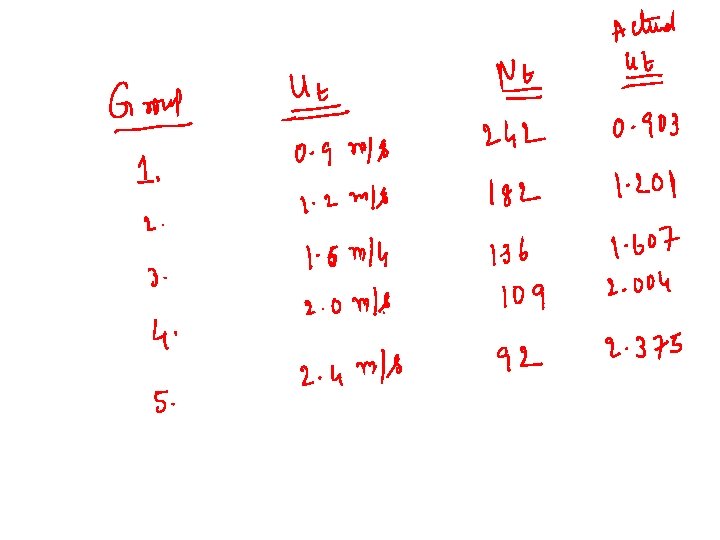 Group Ut Nt Actual Ut
1. 0.9 m/s 242 0.903
2. 1.2 m/s 182 1.201
3. 1.6 m/s 136 1.607
4. 2.0 m/s 109 2.004
5. 2.4 m/s 92 2.375